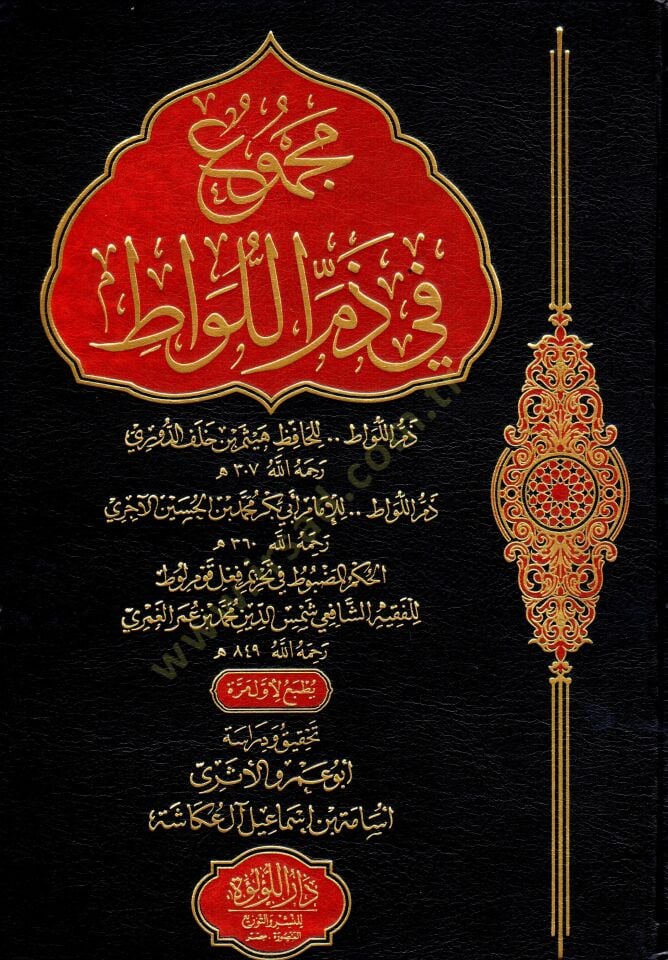 مجموع
في ذم اللواط
ذم اللواط .. للحافظ هيثم بن خلف الدوري
رحمه الله ٣٠٧ هـ
ذم اللواط .. للإمام أبي بكر محمد بن الحسين الآجري
رحمه الله ٣٦٠ هـ
الحكم المضبوط في تحريم فعل قوم لوط
للفقيه الشافعي شمس الدين محمد بن عمر الغمري
رحمه الله ٨٤٩ هـ
يطبع لأول مرة
تحقيق ودراسة
أبو عمرو الأثري
أسامة بن إسماعيل آل عكاشة
دار اللؤلؤة
للنشر والتوزيع
المنصورة . مصر